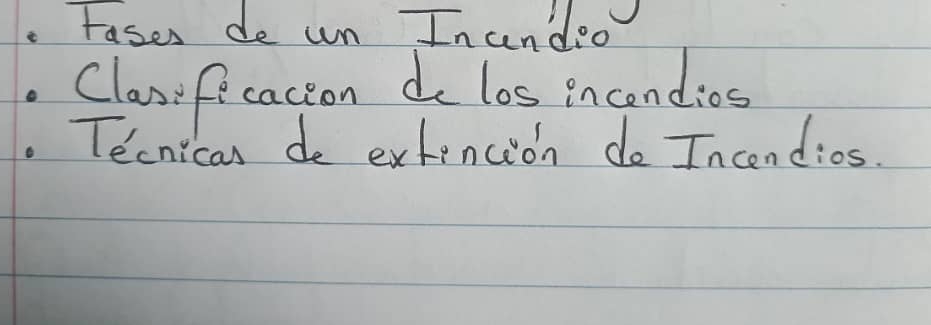 • Fases de un Incendio
• Clasificacion de los incendios
• Técnicas de extinción de Incendios.